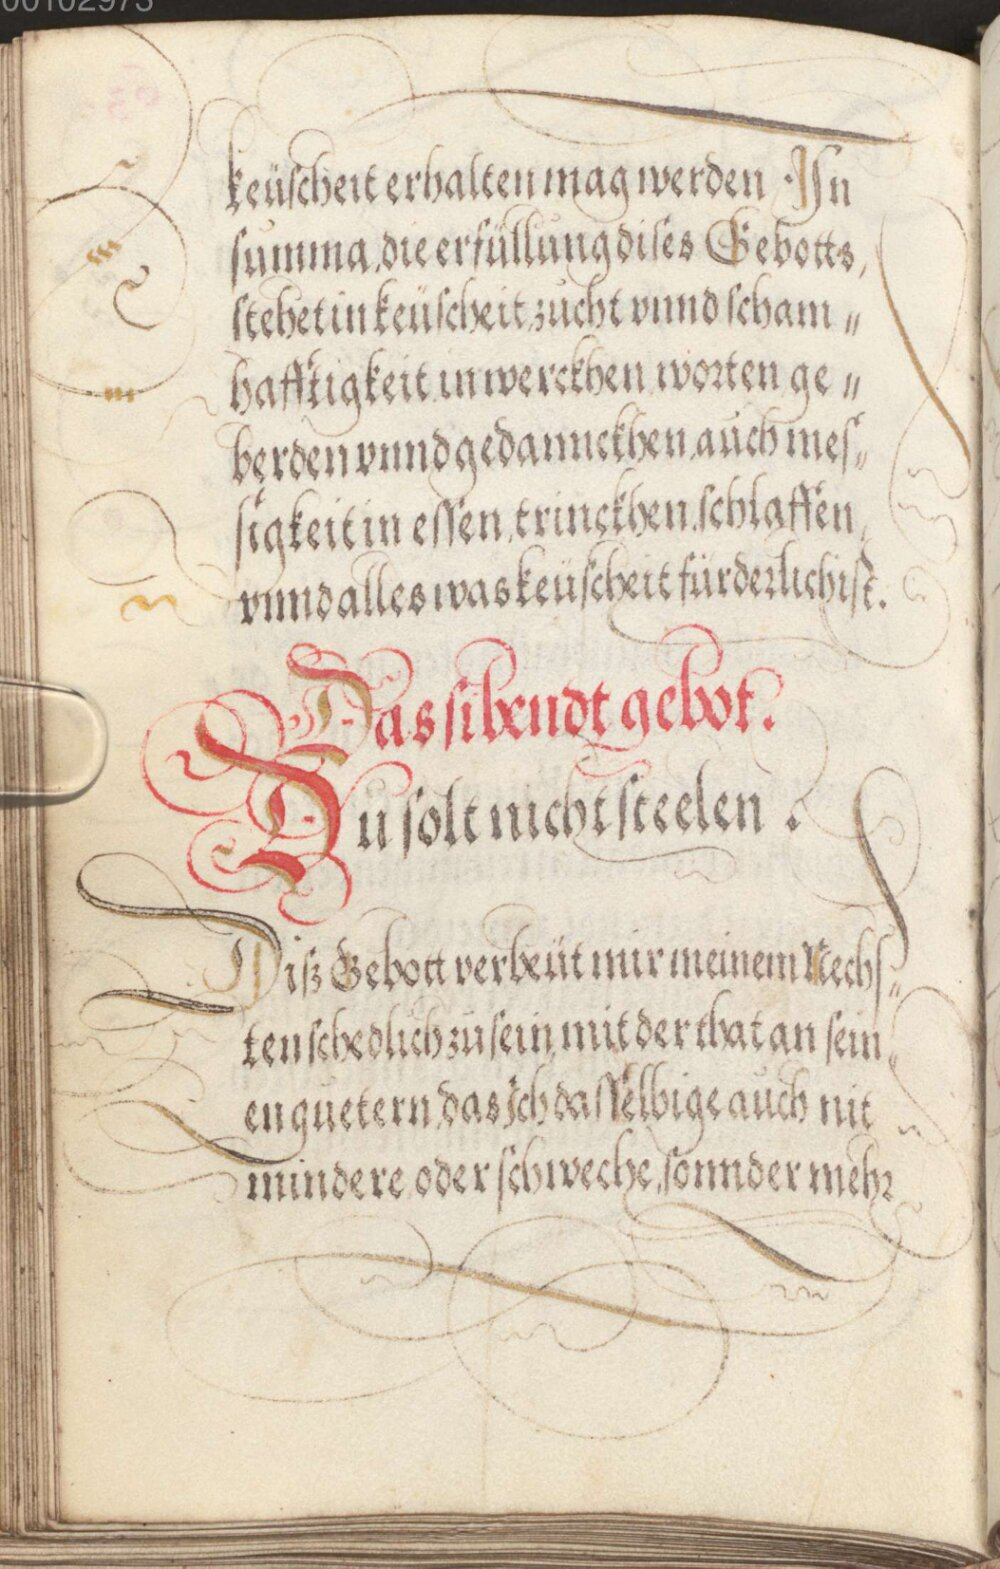 keüscheit erhalten mag werden. In
summa, die erfüllung dises Gebotts,
stehet in keüscheit, zucht vnnd scham „
hafftigkeit in werckhen, worten, ge „
berden vnnd gedannckhen, auch mes„
sigkeit in essen, trinckhen, schlaffen,
vnnd alles was keüscheit fürderlich ist.
Das sibendt gebot.
Du solt nicht steelen.
Diß Gebott verbeüt mir meinem Nechs„
ten schedlich zů sein, mit der that an sein„
en guetern, das Ich dasselbige auch nit
mindere, oder schweche, sonnder mehr